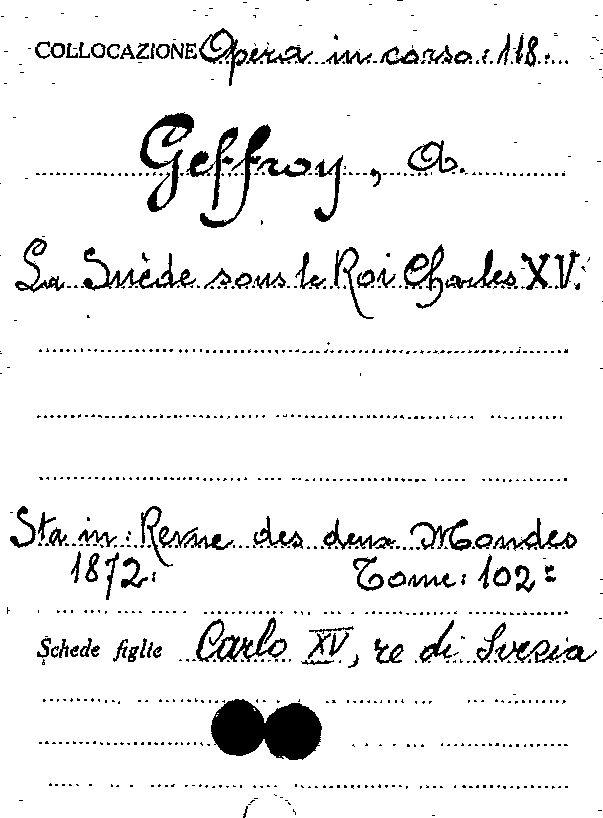 COLLOCAZIONE Opera in corso: 118.
Geffroy, A.
La Suède sous le Roi Charles XV.
Sta in: Revue des deux Mondes
1872. Tome: 102=
Schede figlie Carlo XV, re di Svezia